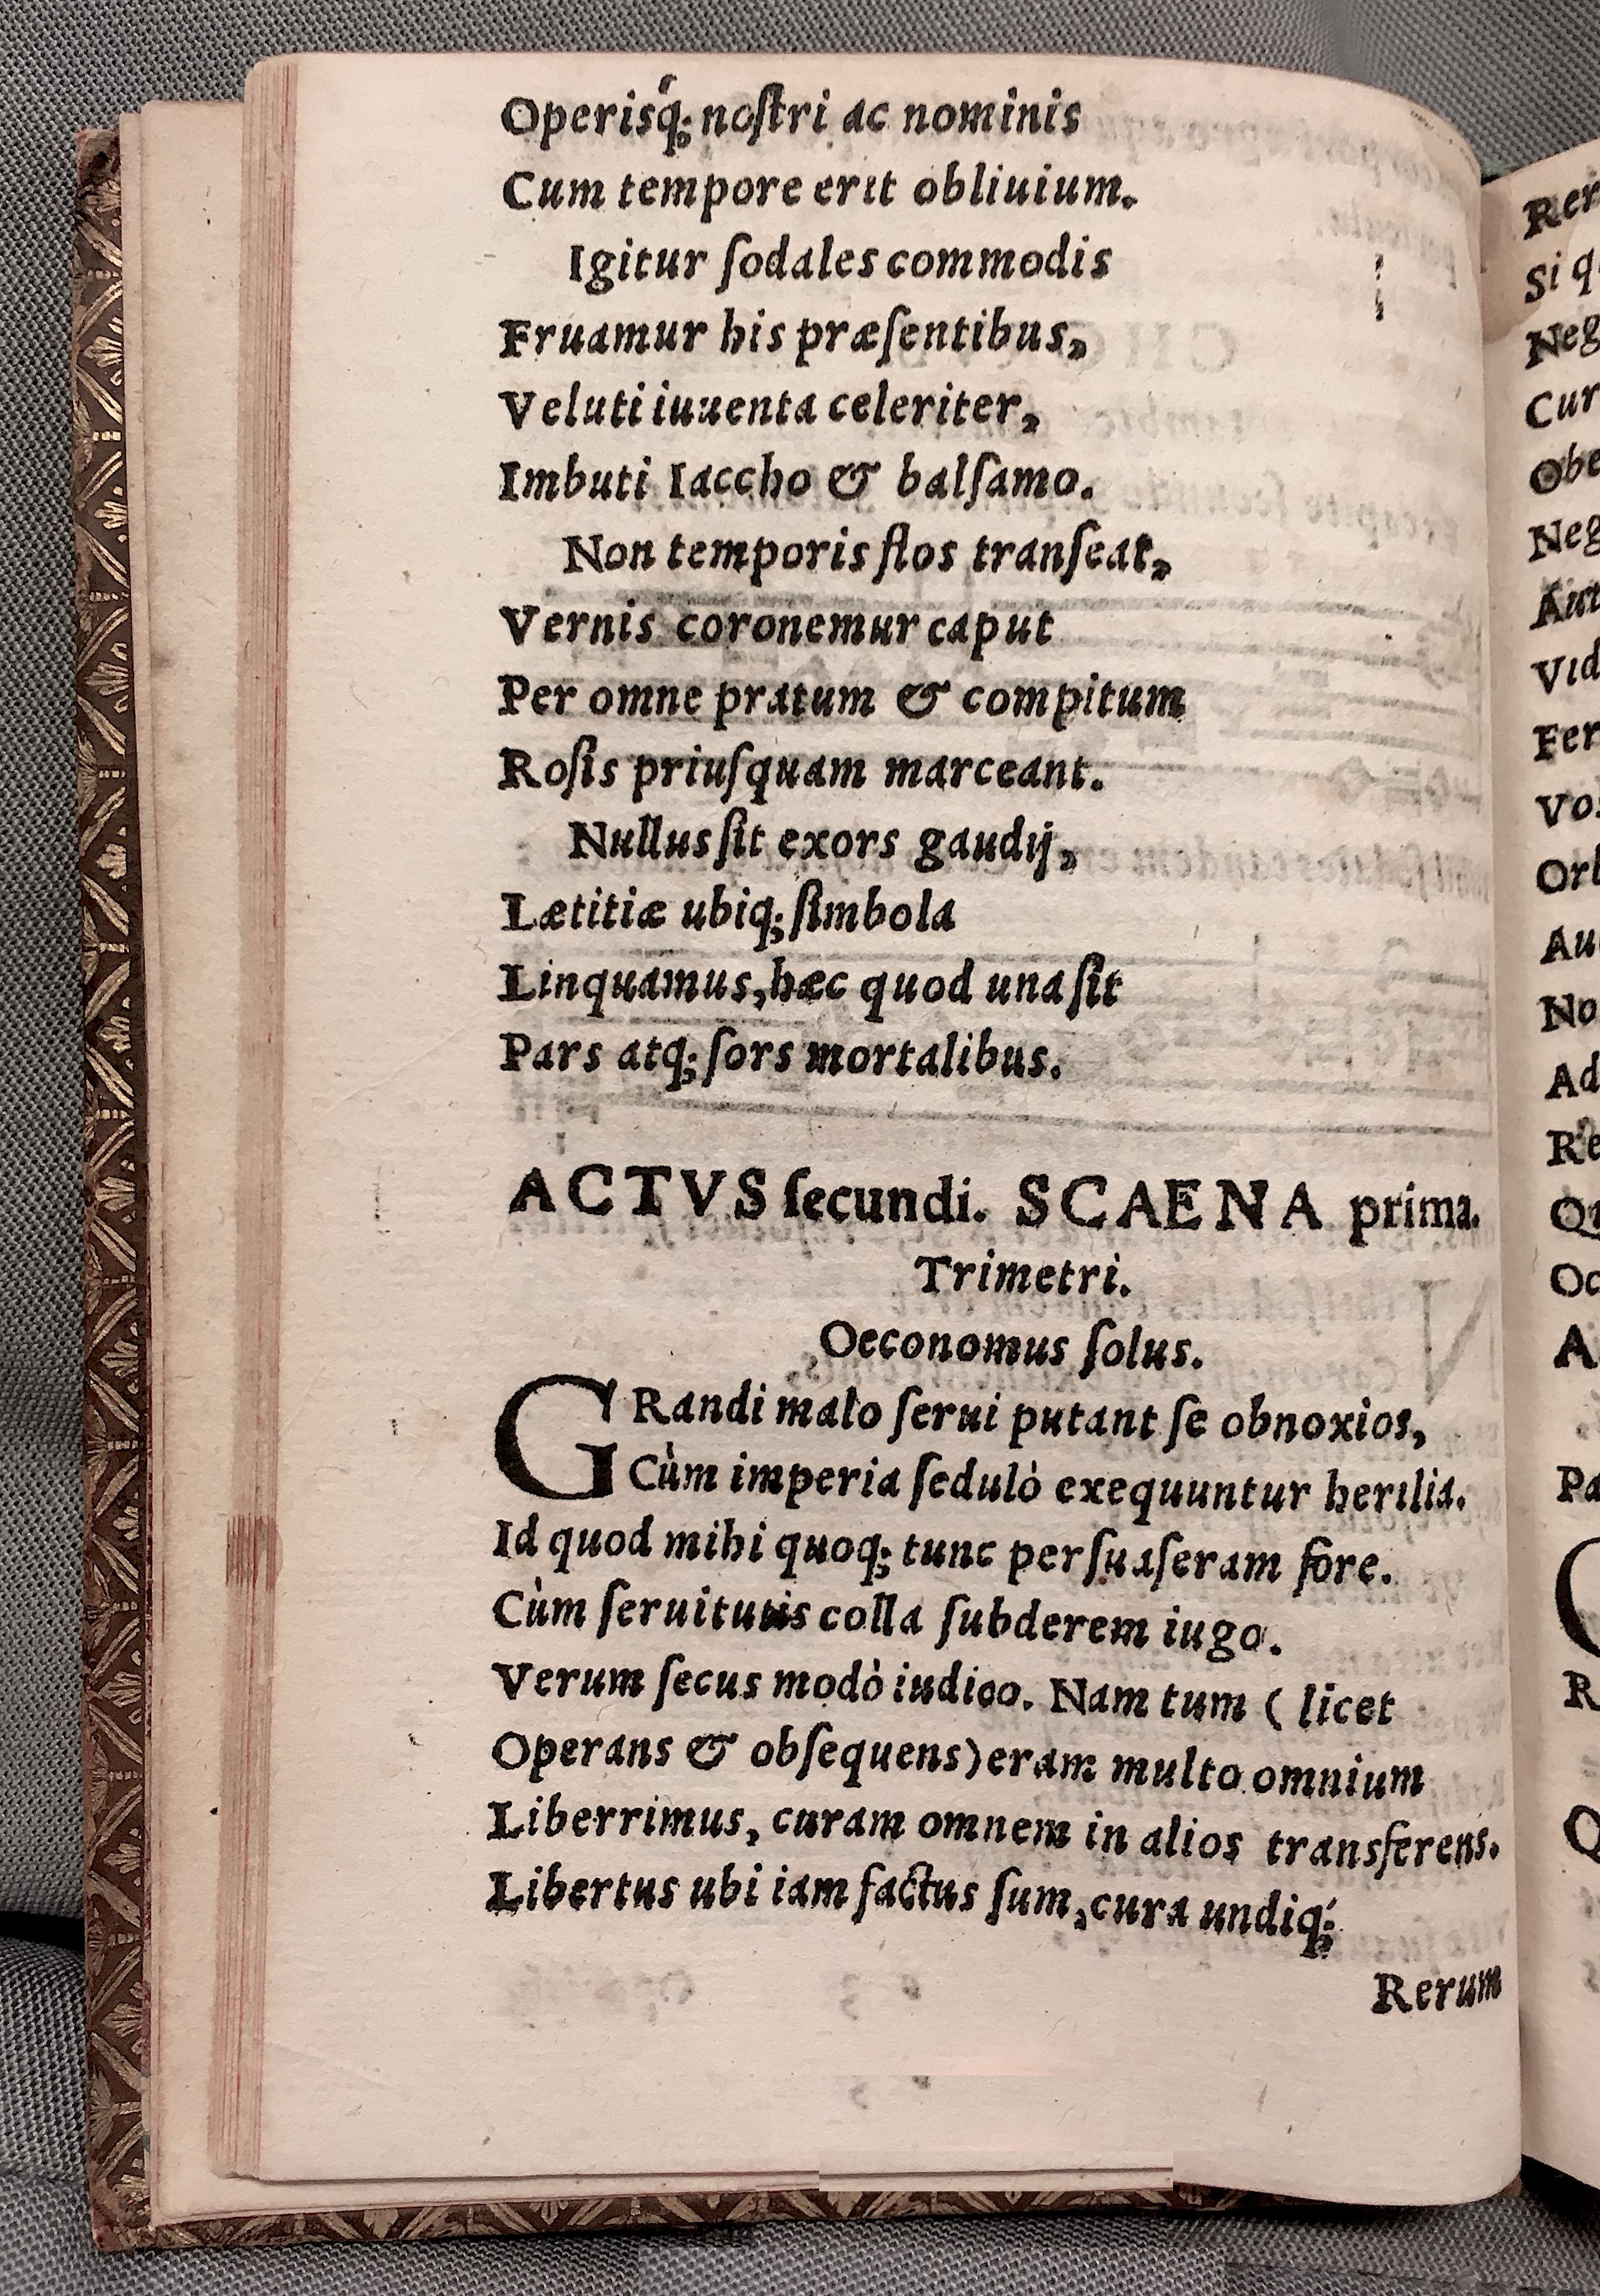 Operisq́; noſtri ac nominis
Cum tempore erit obliuium.
Igitur ſodales commodis
Fruamur his præſentibus,
Veluti iuuenta celeriter,
Imbuti Iaccho & balſamo.
Non temporis flos tranſeat,
Vernis coronemur caput
Per omne pratum & compitum
Roſis priuſquam marceant.
Nullus ſit exors gaudij,
Lætitiæ ubiq; ſimbola
Linquamus, hæc quod una ſit
Pars atq; ſors mortalibus.
ACTVS ſecundi. SCAENA prima.
Trimetri.
Oeconomus ſolus.
GRandi malo ſerui putant ſe obnoxios,
Cùm imperia ſedulò exequuntur herilia.
Id quod mihi quoq; tunc perſuaſeram fore.
Cùm ſeruitutis colla ſubderem iugo.
Verum ſecus modò iudico. Nam tum ( licet
Operans & obſequens) eram multo omnium
Liberrimus, curam omnem in alios transferens.
Libertus ubi iam factus ſum, cura undiq́;
Rerum
Rer
Si q
Neg
Cur
Obe
Neg
Aut
Vid
Fer
Vos
Orb
Au
No
Ad
Re
Qu
Oc
A
Pa
R
Q